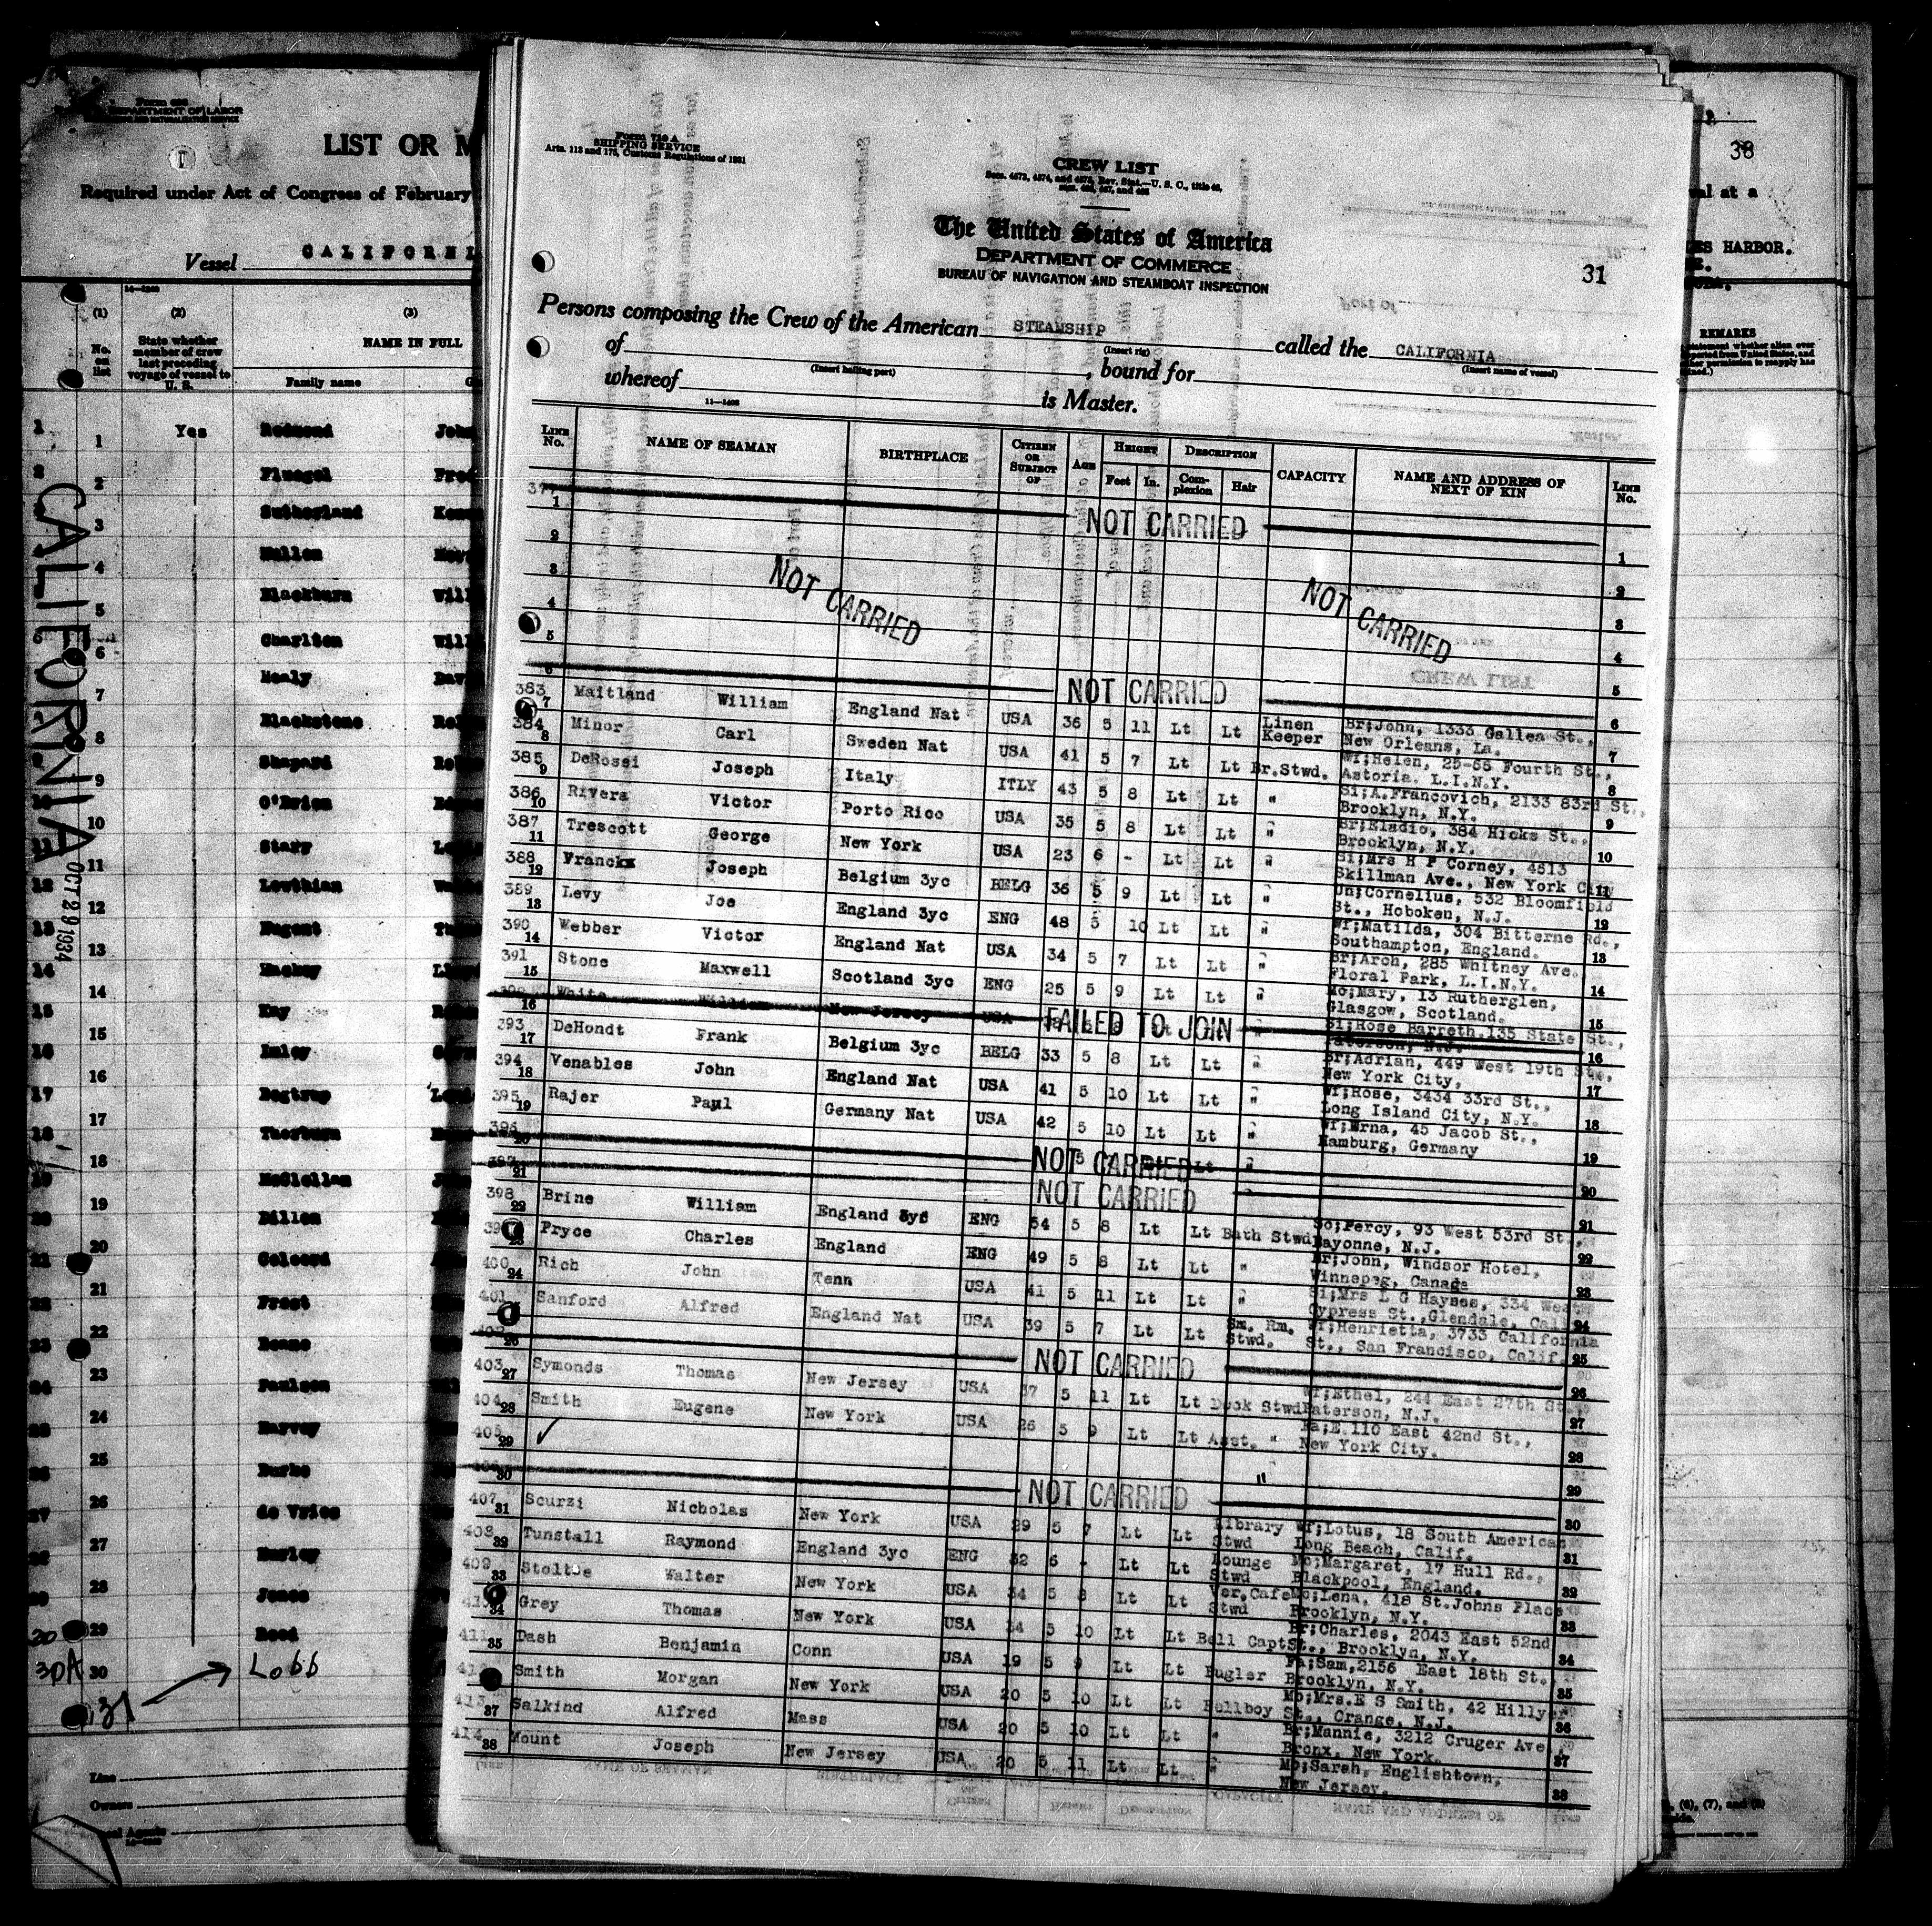 Form 689
DEPARTMENT OF LABOR
LIST OR M
Required under Act of Congress of February
Vessel CALIFORNI
(1) (2) (3)
No. on list
State whether member of crew last preceding voyage of vessel to U. S.
NAME IN FULL
Family name
1 1 Yes Redmond John
2 2 Fluegel Fred
3 Sutherland
4 Mullen
5 Blackburn Will
6 Charlton Will
7 Healy Dav
8 Blackstone
9 Shepard
10 O'Brien
11 Stary
12 Lowthian
13 Nugent
14 Mackey
15 Kay
16 Imley
17 Bogtrup
18 Thorburn
19 McClellan
20 Dillen
21 Colcord
22 Frost
23 Deane
24 Paulsen
25 Harvey
26 Burke
27 de Vries
28 Hurley
29 Jones
30 Reed
30A Lobb
31
CALIFORNIA
OCT 29 1934
Line
Owners
38
al at a
ES HARBOR.
REMARKS
Form 710 A
SHIPPING SERVICE
Arts. 113 and 175, Customs Regulations of 1931
CREW LIST
Secs. 4573, 4574, and 4575, Rev. Stat.—U. S. C., title 46,
secs. 465, 467, and 468
The United States of America
DEPARTMENT OF COMMERCE
BUREAU OF NAVIGATION AND STEAMBOAT INSPECTION
31
Persons composing the Crew of the American STEAMSHIP called the CALIFORNIA
(Insert rig) (Insert name of vessel)
of , bound for
(Insert hailing port)
whereof is Master.
11—1408
LINE No. NAME OF SEAMAN BIRTHPLACE CITIZEN OR SUBJECT OF AGE HEIGHT DESCRIPTION CAPACITY NAME AND ADDRESS OF NEXT OF KIN LINE No.
Feet In. Complexion Hair
1 NOT CARRIED 1
2 2
3 NOT CARRIED NOT CARRIED 3
4 4
5 5
6 NOT CARRIED 6
383 7 Maitland William England Nat USA 36 5 11 Lt Lt Linen Keeper Br;John, 1333 Gallea St., New Orleans, La. 7
384 8 Minor Carl Sweden Nat USA 41 5 7 Lt Lt Br.Stwd. Wf;Helen, 25-66 Fourth St., Astoria. L.I.N.Y. 8
385 9 DeRossi Joseph Italy ITLY 43 5 8 Lt Lt " Si;A.Francovich, 2133 83rd St., Brooklyn, N.Y. 9
386 10 Rivera Victor Porto Rico USA 35 5 8 Lt Lt " Br;Eladio, 384 Hicks St., Brooklyn, N.Y. 10
387 11 Trescott George New York USA 23 6 - Lt Lt " Si;Mrs H P Corney, 4813 Skillman Ave., New York City 11
388 12 Franckx Joseph Belgium 3yc BELG 36 5 9 Lt Lt " Un;Cornelius, 532 Bloomfield St., Hoboken, N.J. 12
389 13 Levy Joe England 3yc ENG 48 5 10 Lt Lt " Wf;Matilda, 304 Bitterne Rd., Southampton, England. 13
390 14 Webber Victor England Nat USA 34 5 7 Lt Lt " Br;Arch, 285 Whitney Ave. Floral Park, L.I.N.Y. 14
391 15 Stone Maxwell Scotland 3yc ENG 25 5 9 Lt Lt " Mo;Mary, 13 Rutherglen, Glasgow, Scotland. 15
392 16 White William New Jersey USA FAILED TO JOIN Si;Rose Barreth,135 State St., Paterson, N.J. 16
393 17 DeHondt Frank Belgium 3yc BELG 33 5 8 Lt Lt " Br;Adrian, 449 West 19th St., New York City, 17
394 18 Venables John England Nat USA 41 5 10 Lt Lt " Wf;Rose, 3434 33rd St., Long Island City, N.Y. 18
395 19 Rajer Paul Germany Nat USA 42 5 10 Lt Lt " Wf;Erna, 45 Jacob St., Hamburg, Germany 19
396 20 NOT CARRIED " 20
397 21 NOT CARRIED 21
398 22 Brine William England 3yc ENG 54 5 8 Lt Lt Bath Stwd So;Percy, 93 West 53rd St., Bayonne, N.J. 22
399 23 Pryce Charles England ENG 49 5 8 Lt Lt " Br;John, Windsor Hotel, Winnepeg, Canada 23
400 24 Rich John Tenn USA 41 5 11 Lt Lt " Si;Mrs L G Hayses, 334 West Cypress St.,Glendale, Cal 24
401 Sanford Alfred England Nat USA 39 5 7 Lt Lt Sm. Rm. Stwd. Wf;Henrietta, 3733 California St., San Francisco, Calif. 25
402 26 NOT CARRIED 26
403 27 Symonds Thomas New Jersey USA 37 5 11 Lt Lt Deck Stwd Wf;Ethel, 244 East 27th St. Paterson, N.J. 27
404 28 Smith Eugene New York USA 26 5 9 Lt Lt Asst. " Fa;E.110 East 42nd St., New York City. 28
405 29 ✓ " 29
406 30 NOT CARRIED 30
407 31 Scurzi Nicholas New York USA 29 5 7 Lt Lt Library Stwd Wf;Lotus, 18 South American Long Beach, Calif. 31
408 32 Tunstall Raymond England 3yc ENG 32 6 - Lt Lt Lounge Stwd Mo;Margaret, 17 Hull Rd., Blackpool, England. 32
409 33 Stoltze Walter New York USA 34 5 8 Lt Lt Ver.Cafe Stwd Mo;Lena, 418 St.Johns Place Brooklyn, N.Y. 33
410 34 Grey Thomas New York USA 34 5 10 Lt Lt Bell Capt Br;Charles, 2043 East 52nd St., Brooklyn, N.Y. 34
411 35 Dash Benjamin Conn USA 19 5 9 Lt Lt Bugler Fa;Sam,2156 East 18th St. Brooklyn, N.Y. 35
412 Smith Morgan New York USA 20 5 10 Lt Lt Bellboy Mo;Mrs.E S Smith, 42 Hillyer St., Orange, N.J. 36
413 37 Salkind Alfred Mass USA 20 5 10 Lt Lt " Br;Mannie, 3212 Cruger Ave Bronx, New York. 37
414 38 Mount Joseph New Jersey USA 20 5 11 Lt Lt " Mo;Sarah, Englishtown, New Jersey. 38